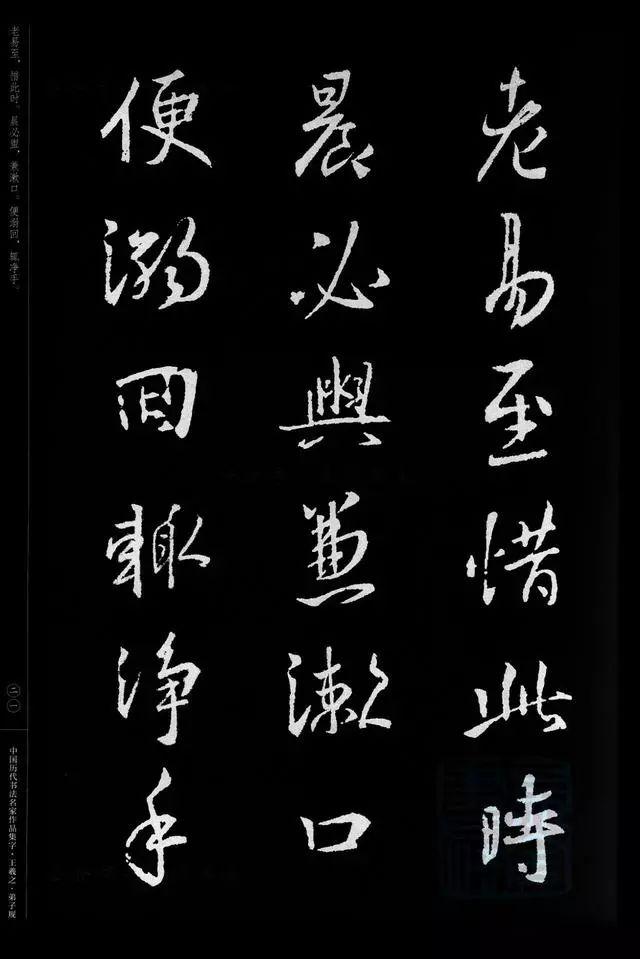 老易至惜此時
晨必興兼漱口
便溺回輒浄手
老易至，惜此时。晨必盥，兼漱口。便溺回，辄净手。
二一
中国历代书法名家作品集字·王羲之·弟子规